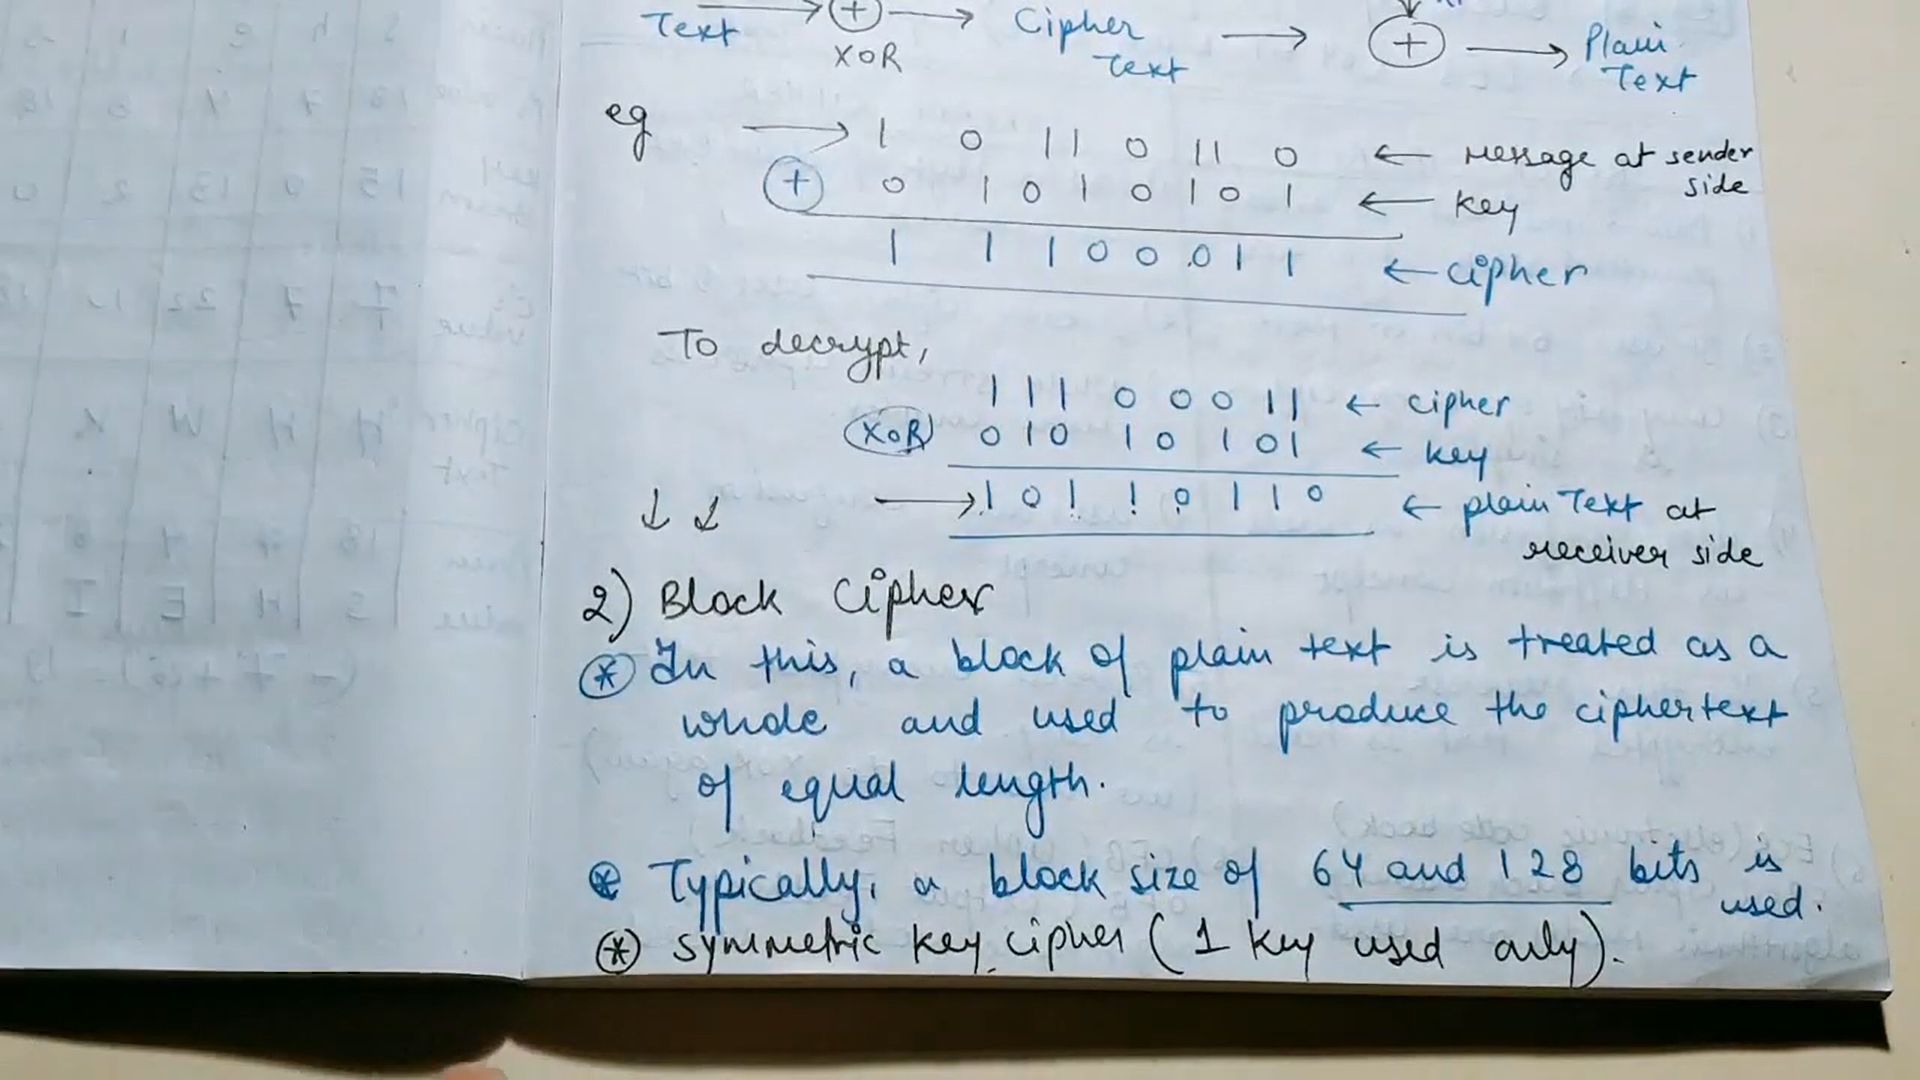 Text → ⊕ → Cipher → ⊕ → Plain
XOR Text Text
eg → 1 0 1 1 0 1 1 0 ← message at sender side
⊕ 0 1 0 1 0 1 0 1 ← key
1 1 1 0 0 0 1 1 ← cipher
To decrypt,
1 1 1 0 0 0 1 1 ← cipher
XOR 0 1 0 1 0 1 0 1 ← key
↓ ↓ → 1 0 1 1 0 1 1 0 ← plain Text at
receiver side
2) Block Cipher
* In this, a block of plain text is treated as a
whole and used to produce the ciphertext
of equal length.
* Typically, a block size of 64 and 128 bits is
used.
* symmetric key cipher (1 key used only).